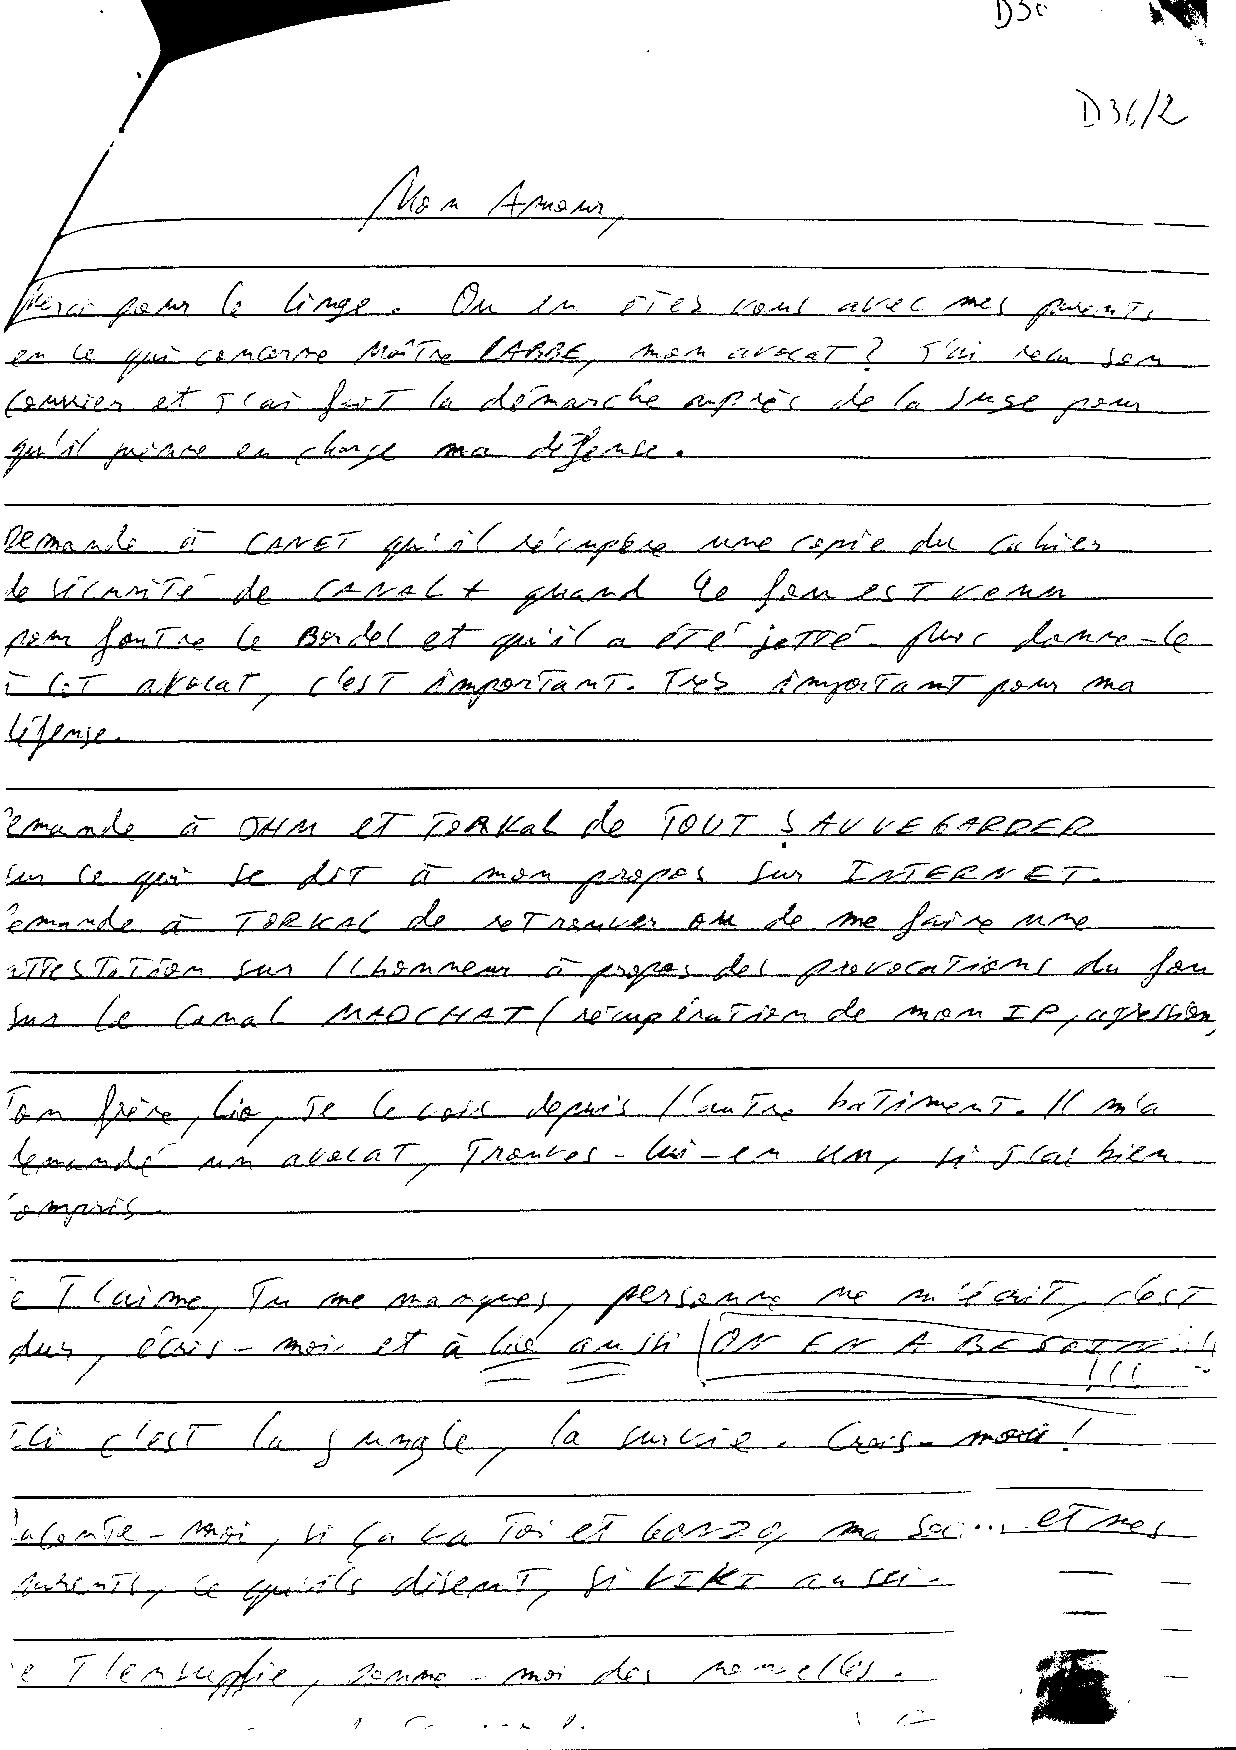 D36
D36/2
Mon Amour,
Merci pour le linge. Ou en êtes vous avec mes parents
en ce qui concerne Maître LABBE, mon avocat? J'ai reçu son
courrier et J'ai fait la démarche auprès de la Juge pour
qu'il prenne en charge ma défense.
Demande à CANET qu'il récupère une copie du cahier
de sécurité de CANAL + quand le fou est venu
pour foutre le Bordel et qu'il a été jetté. Puis donne-le
à cet avocat, c'est important. Très important pour ma
défense.
emande à OHM et TORKAL de TOUT SAUVEGARDER
sur ce qui se dit à mon propos sur INTERNET.
emande à TORKAL de retrouver ou de me faire une
attestation sur l'honneur à propos des provocations du fou
sur le canal MADCHAT (récupération de mon IP, agression,
Ton frère, Lio, Je le vois depuis l'autre batiment. Il m'a
demandé un avocat, Trouves-lui-en un, si J'ai bien
compris.
e T'aime, Tu me manques, personne ne m'écrit, c'est
dur, écris-moi et à Lio aussi (ON EN A BESOIN !!
!!!
Ici c'est la jungle, la survie. Crois-moi!
Raconte-moi, si ça va Toi et Gonzo, ma et mes
parents, ce qu'ils disent, si VIKI aussi.
e T'en supplie, donne-moi des nouvelles.